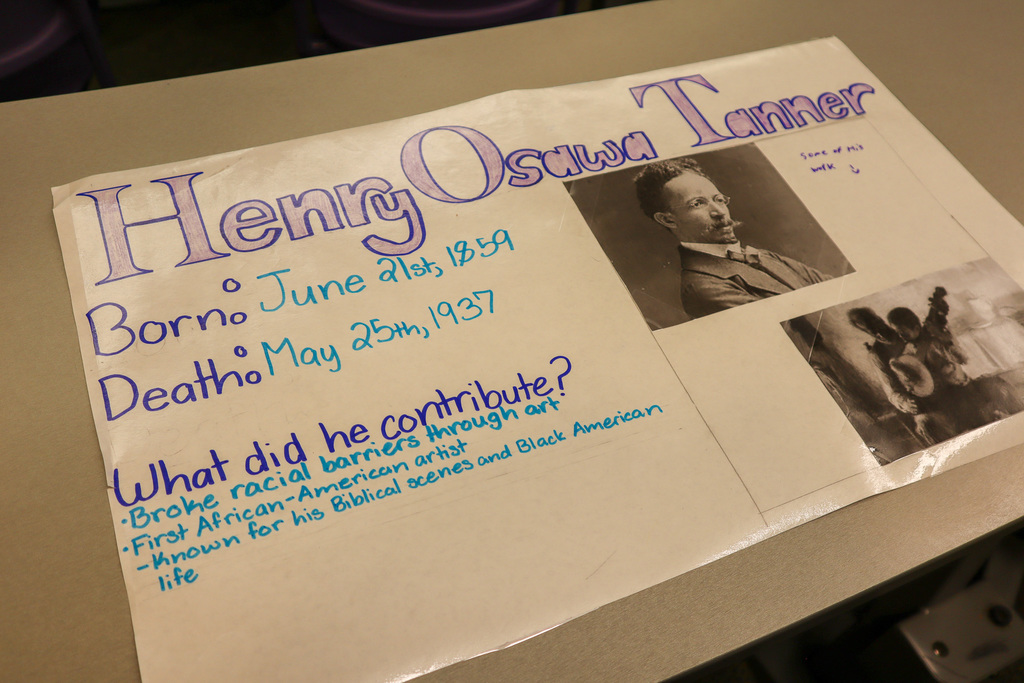 Henry Osawa Tanner
Born: June 21st, 1859
Death: May 25th, 1937
What did he contribute?
•Broke racial barriers through art
•First African-American artist
-Known for his Biblical scenes and Black American
life
some of his
work